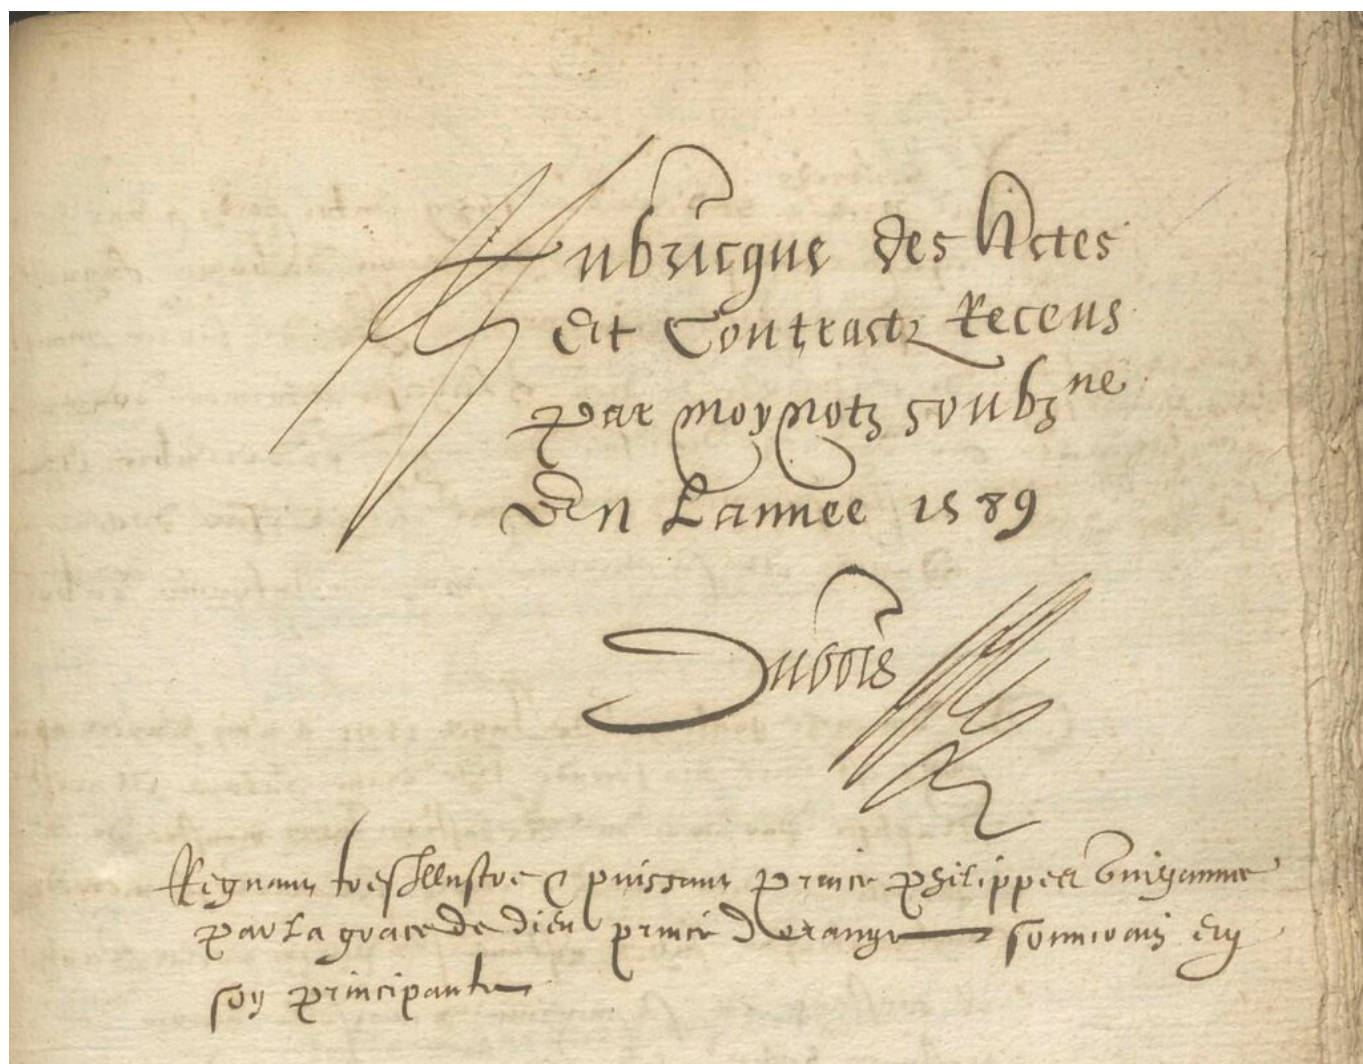 Rubricque des Actes
Et Contractz Receus
par moy notre soubzne
En Lannee 1589
Dubois
Regnant tresillustre & puissant prince philippes Guillaume
par la grace de dieu prince dorange souverain en
son principaulte